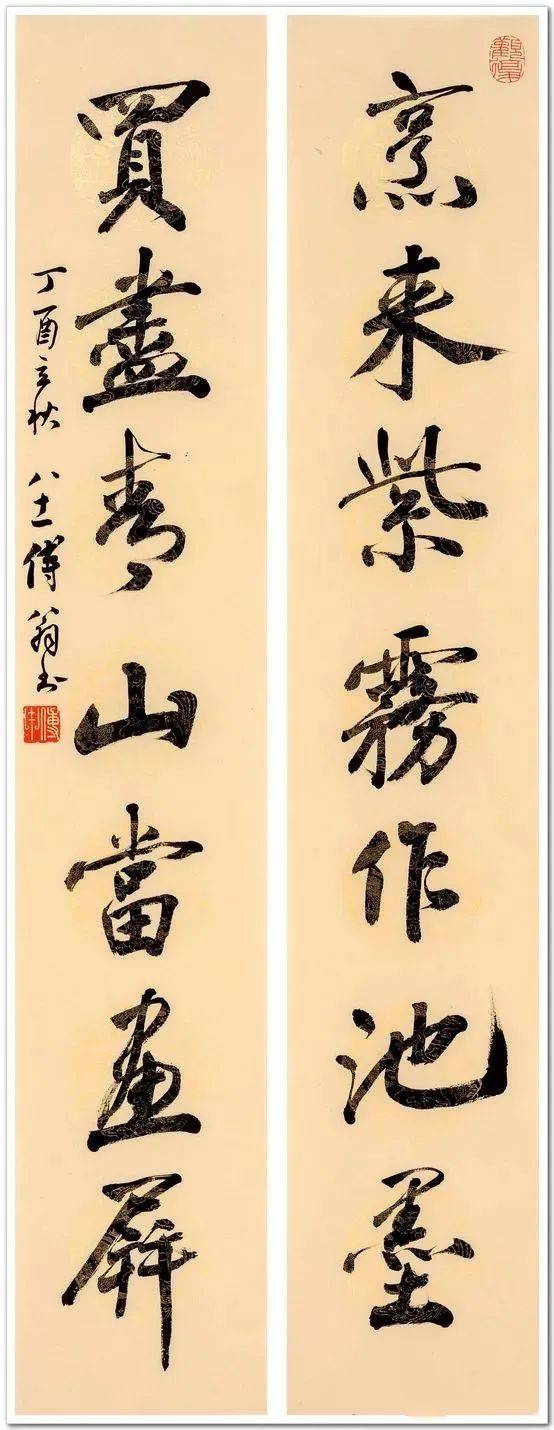 烹來紫霧作池墨
買盡青山當畫屏
丁酉立秋 八十一傅翁書